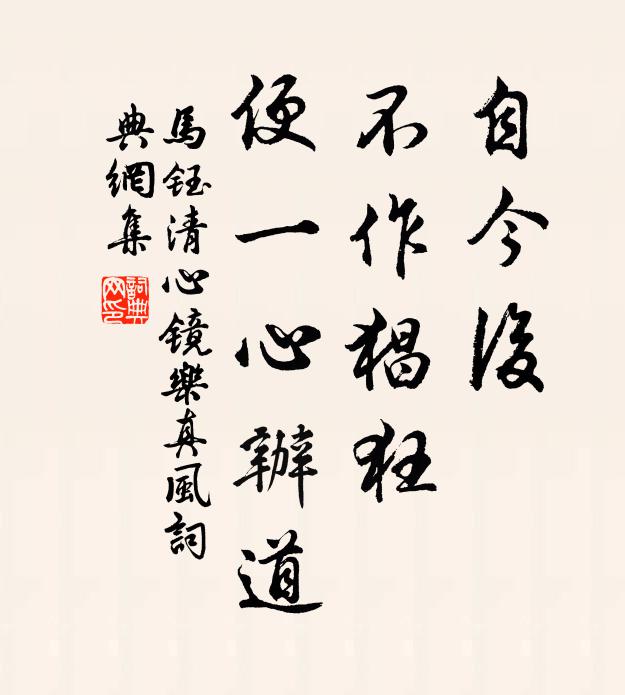 自今後
不作猖狂
便一心辦道
馬鈺清心鏡樂真風詞
典網集
詞典
网印